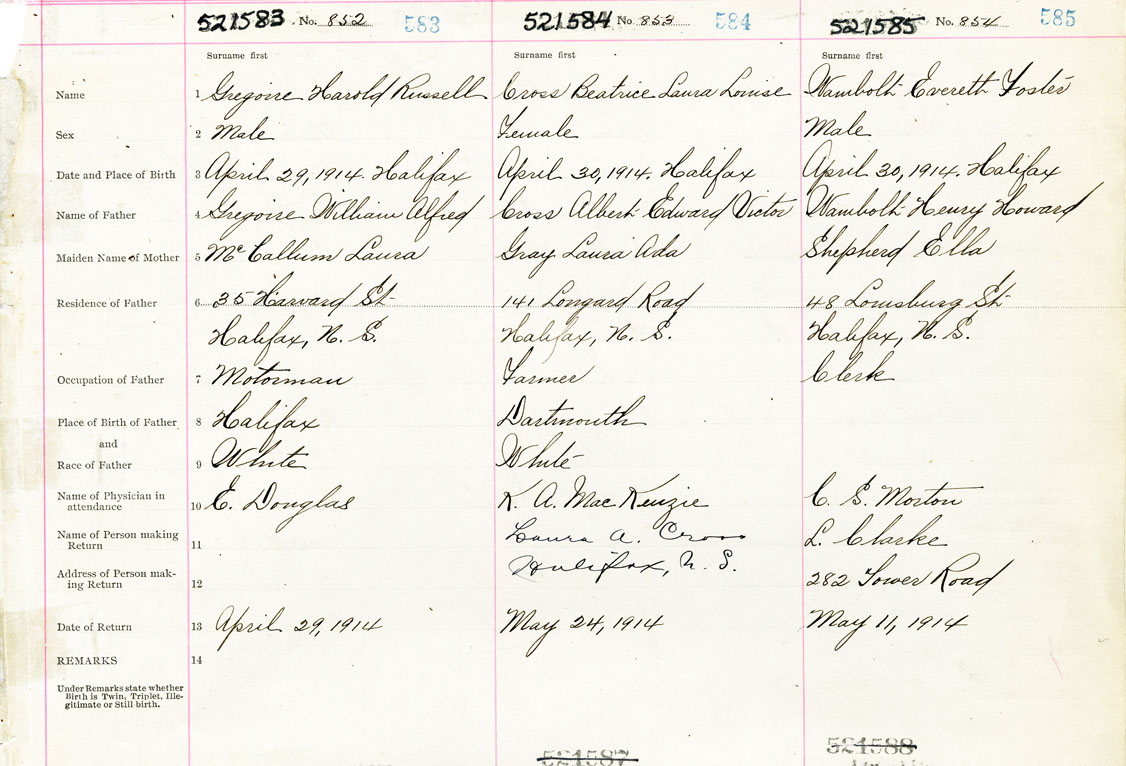 521583 No. 852 583 521584 No. 853 584 521585 No. 854 585
Surname first Surname first Surname first
Name 1 Gregoire Harold Russell Cross Beatrice Laura Louise Wambolt Evereth Foster
Sex 2 Male Female Male
Date and Place of Birth 3 April 29, 1914. Halifax April 30, 1914. Halifax April 30, 1914. Halifax
Name of Father 4 Gregoire William Alfred Cross Albert Edward Victor Wambolt Henry Howard
Maiden Name of Mother 5 Mc Callum Laura Gray Laura Ada Shepherd Ella
Residence of Father 6 35 Harvard St. 141 Longard Road 48 Louisburg St.
Halifax, N. S. Halifax, N. S. Halifax, N. S.
Occupation of Father 7 Motorman Farmer Clerk
Place of Birth of Father 8 Halifax Dartmouth
and
Race of Father 9 White White
Name of Physician in
attendance 10 E. Douglas K. A. Mac Kenzie C. S. Morton
Name of Person making
Return 11 Laura A. Cross L. Clarke
Address of Person mak-
ing Return 12 Halifax, N. S. 282 Tower Road
Date of Return 13 April 29, 1914 May 24, 1914 May 11, 1914
REMARKS 14
Under Remarks state whether
Birth is Twin, Triplet, Ille-
gitimate or Still birth.
521587 521588